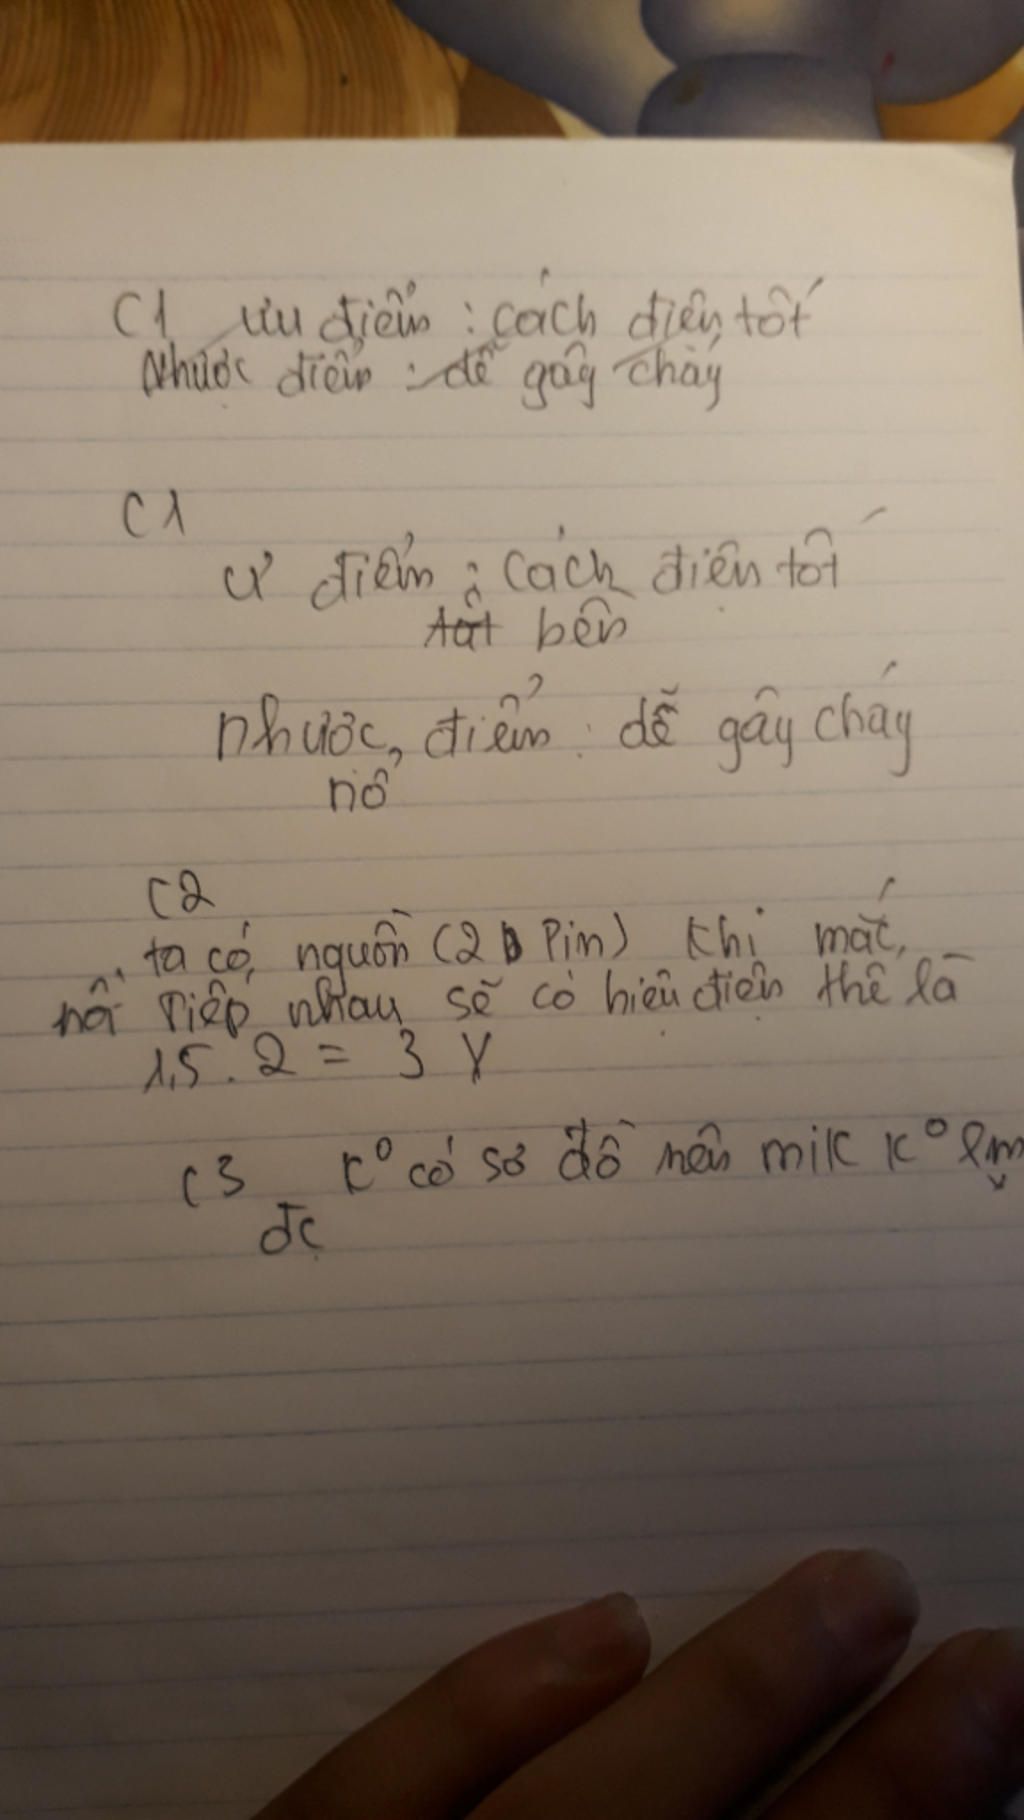 C1 ưu điểm : cách điện tốt
Nhược điểm : dễ gây cháy
C1
Ư điểm : Cách điện tốt
bền
nhược điểm : dễ gây cháy
nổ
C2
ta có nguồn (2 Pin) Khi mắc
nối Tiếp nhau sẽ có hiệu điện thế là
1,5 . 2 = 3 V
C3 K° có sơ đồ nên mik K° lm
đc